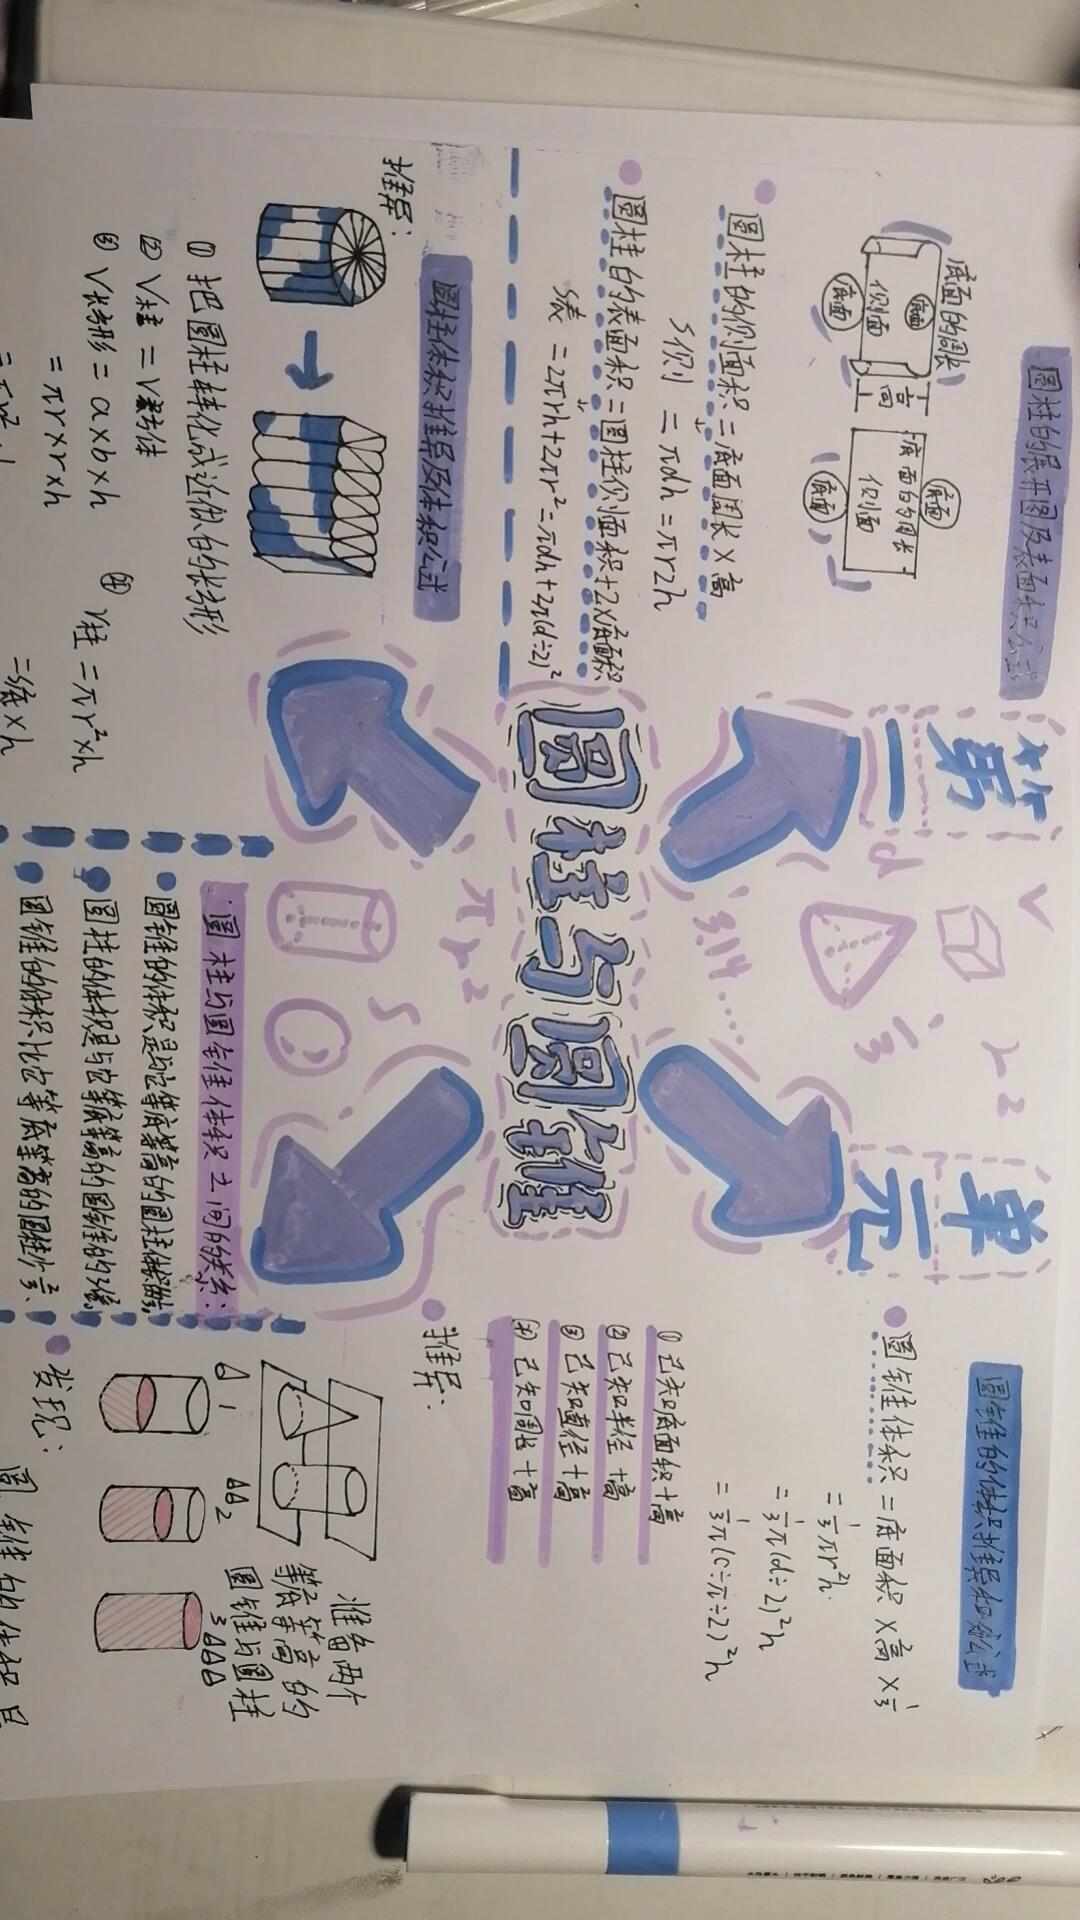 第一单元
圆柱与圆锥
圆柱的展开图及表面积公式
底面的周长
底面
侧面
高
底面
底面
底面的周长
侧面
底面
圆柱的侧面积=底面周长×高
S侧=πdh=πr2h
圆柱的表面积=圆柱侧面积+2×底面积
S表=2πrh+2πr²=πdh+2π(d÷2)²
圆柱体积推导及体积公式
推导:
① 把圆柱转化成近似的长方形
② V柱=V长方体
③ V长方形=a×b×h
=πr×r×h
④ V柱=πr²×h
=S底×h
V
d
3.14……
r²
πr²
S
圆锥的体积推导和公式
圆锥体积=底面积×高×1/3
=1/3πr²h
=1/3π(d÷2)²h
=1/3π(c÷π÷2)²h
① 已知底面积+高
② 已知半径+高
③ 已知直径+高
④ 已知周长+高
推导:
准备两个
等底等高的
圆锥与圆柱
1
2
3
发现:
圆柱与圆锥体积之间的关系:
圆锥的体积是与它等底等高的圆柱体积的
圆柱的体积是与它等底等高的圆锥的3倍
圆锥的体积比它等底等高的圆柱少2/3